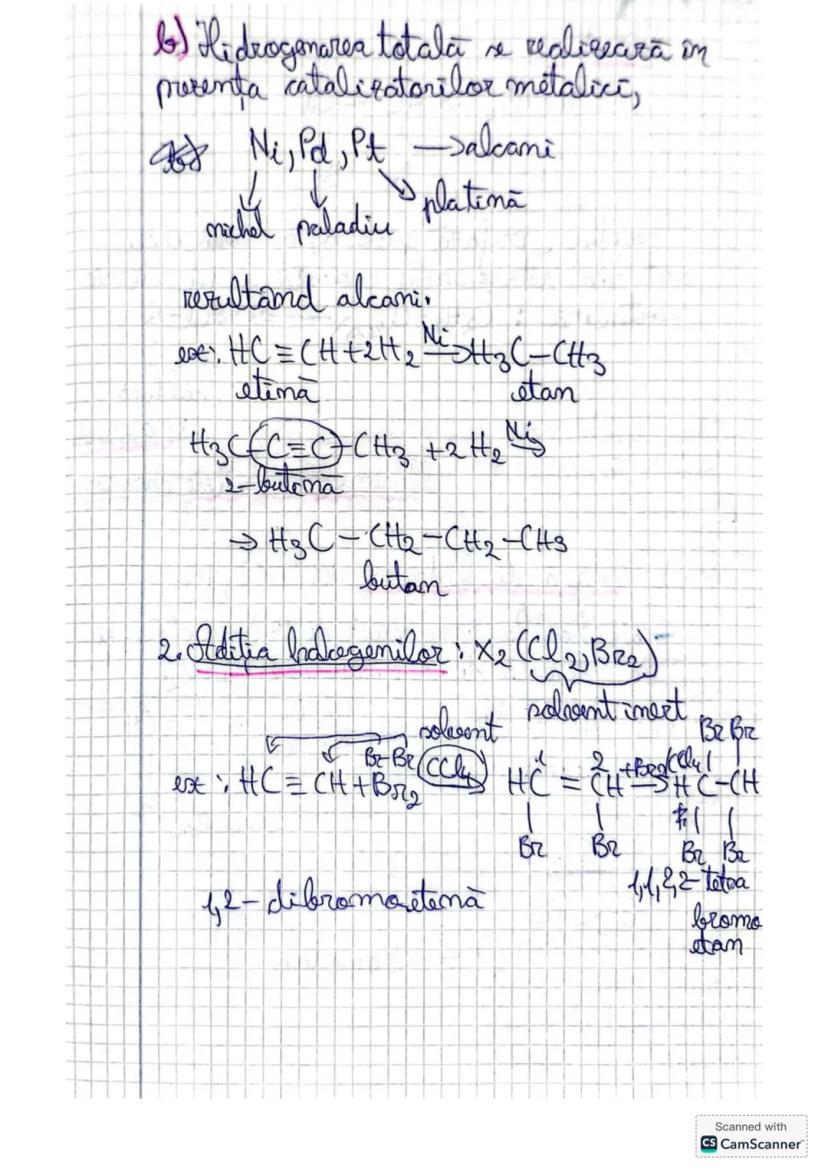 b) Hidrogenarea totală se realizează în
prezența catalizatorilor metalici,
Ni, Pd, Pt → alcani
nichel paladiu platină
rezultând alcani.
ex: HC ≡ CH + 2H₂ Ni→ H₃C – CH₃
etină etan
H₃C – C ≡ C – CH₃ + 2H₂ Ni→
2-butină
→ H₃C – CH₂ – CH₂ – CH₃
butan
2. Adiția halogenilor: X₂ (Cl₂, Br₂)
solvent inert
solvent Br Br
Br-Br
ex: HC ≡ CH + Br₂ (CCl₄)→ HC¹ = ²CH +Br₂(CCl₄)→ HC – CH
Br Br Br Br
1,2 – dibromoetenă 1,1,2,2-tetra
bromo
etan
Scanned with
CS CamScanner